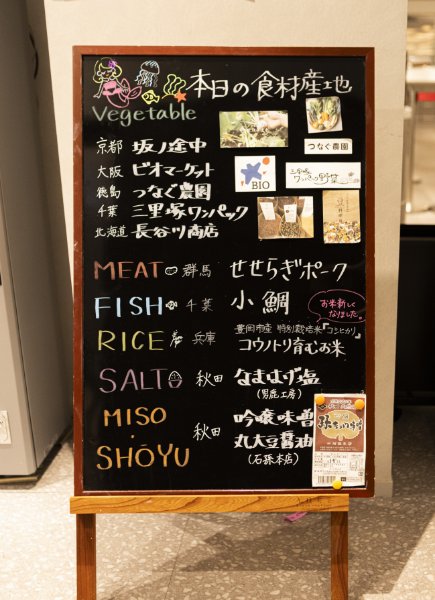 本日の食材産地
Vegetable
京都 坂ノ途中
大阪 ビオマーケット
徳島 つなぐ農園
千葉 三里塚ワンパック
北海道 長谷川商店
つなぐ農園
BIO
三里塚
ワンパック野菜
MEAT 群馬 せせらぎポーク
FISH 千葉 小鯛
お米新しく
なりました。
RICE 兵庫 豊岡市産 特別栽培米『コシヒカリ』
コウノトリ育むお米
SALT 秋田 なまはげ塩
(男鹿工房)
MISO 秋田 吟醸味噌
・
SHŌYU 丸大豆醤油
(石孫本店)